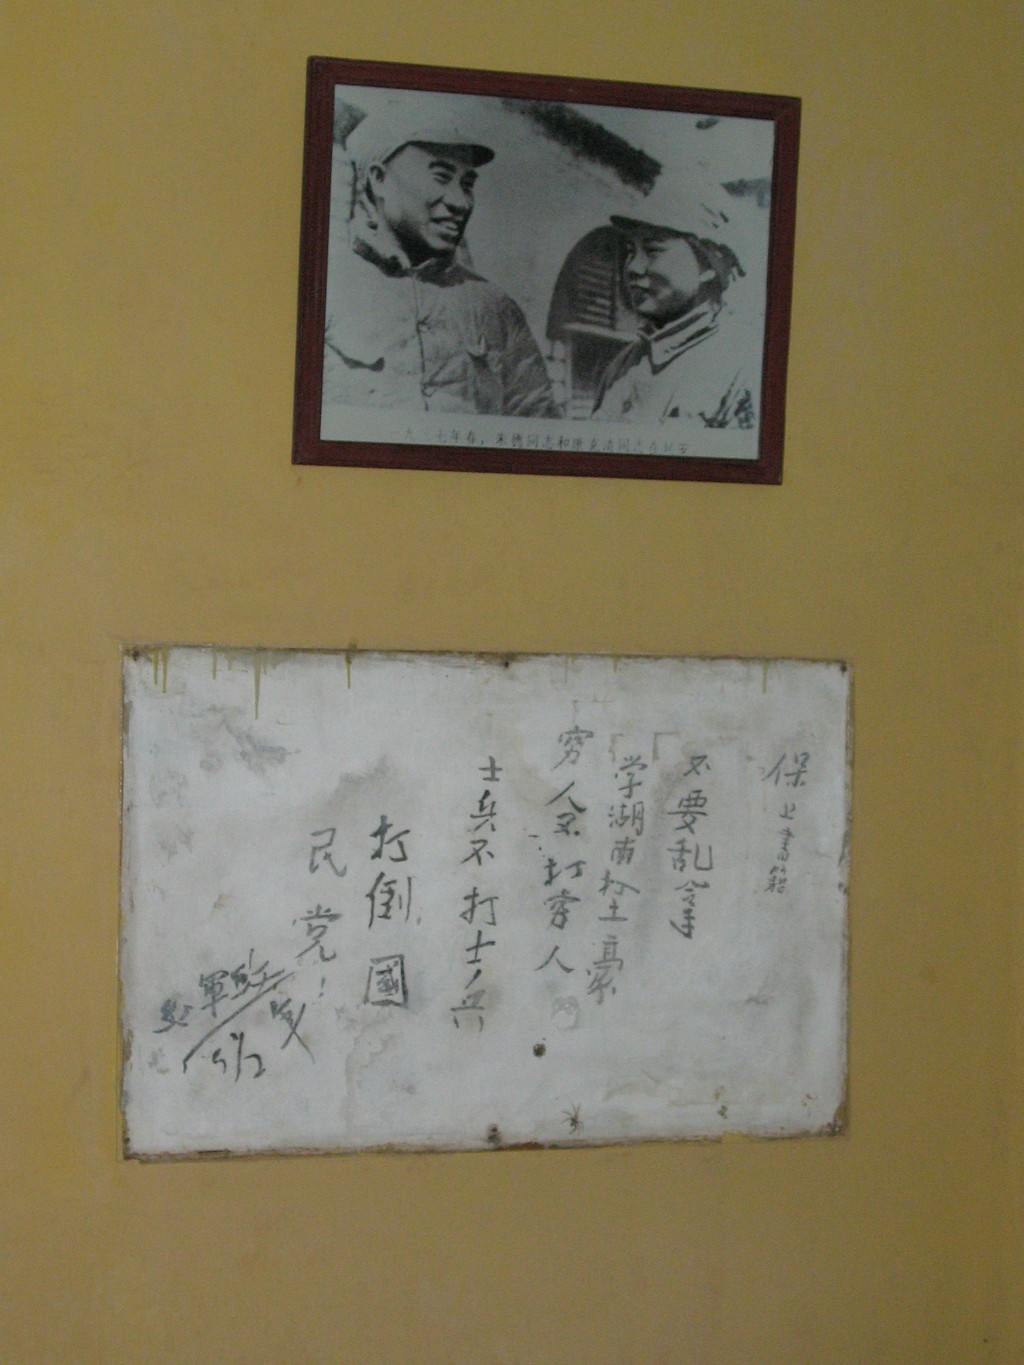 一九三七年春，朱德同志和康克清同志在延安
保上書籍
不要乱拿
学湖南打土豪
穷人不打穷人
士兵不打士兵
打倒國
民党！
軍